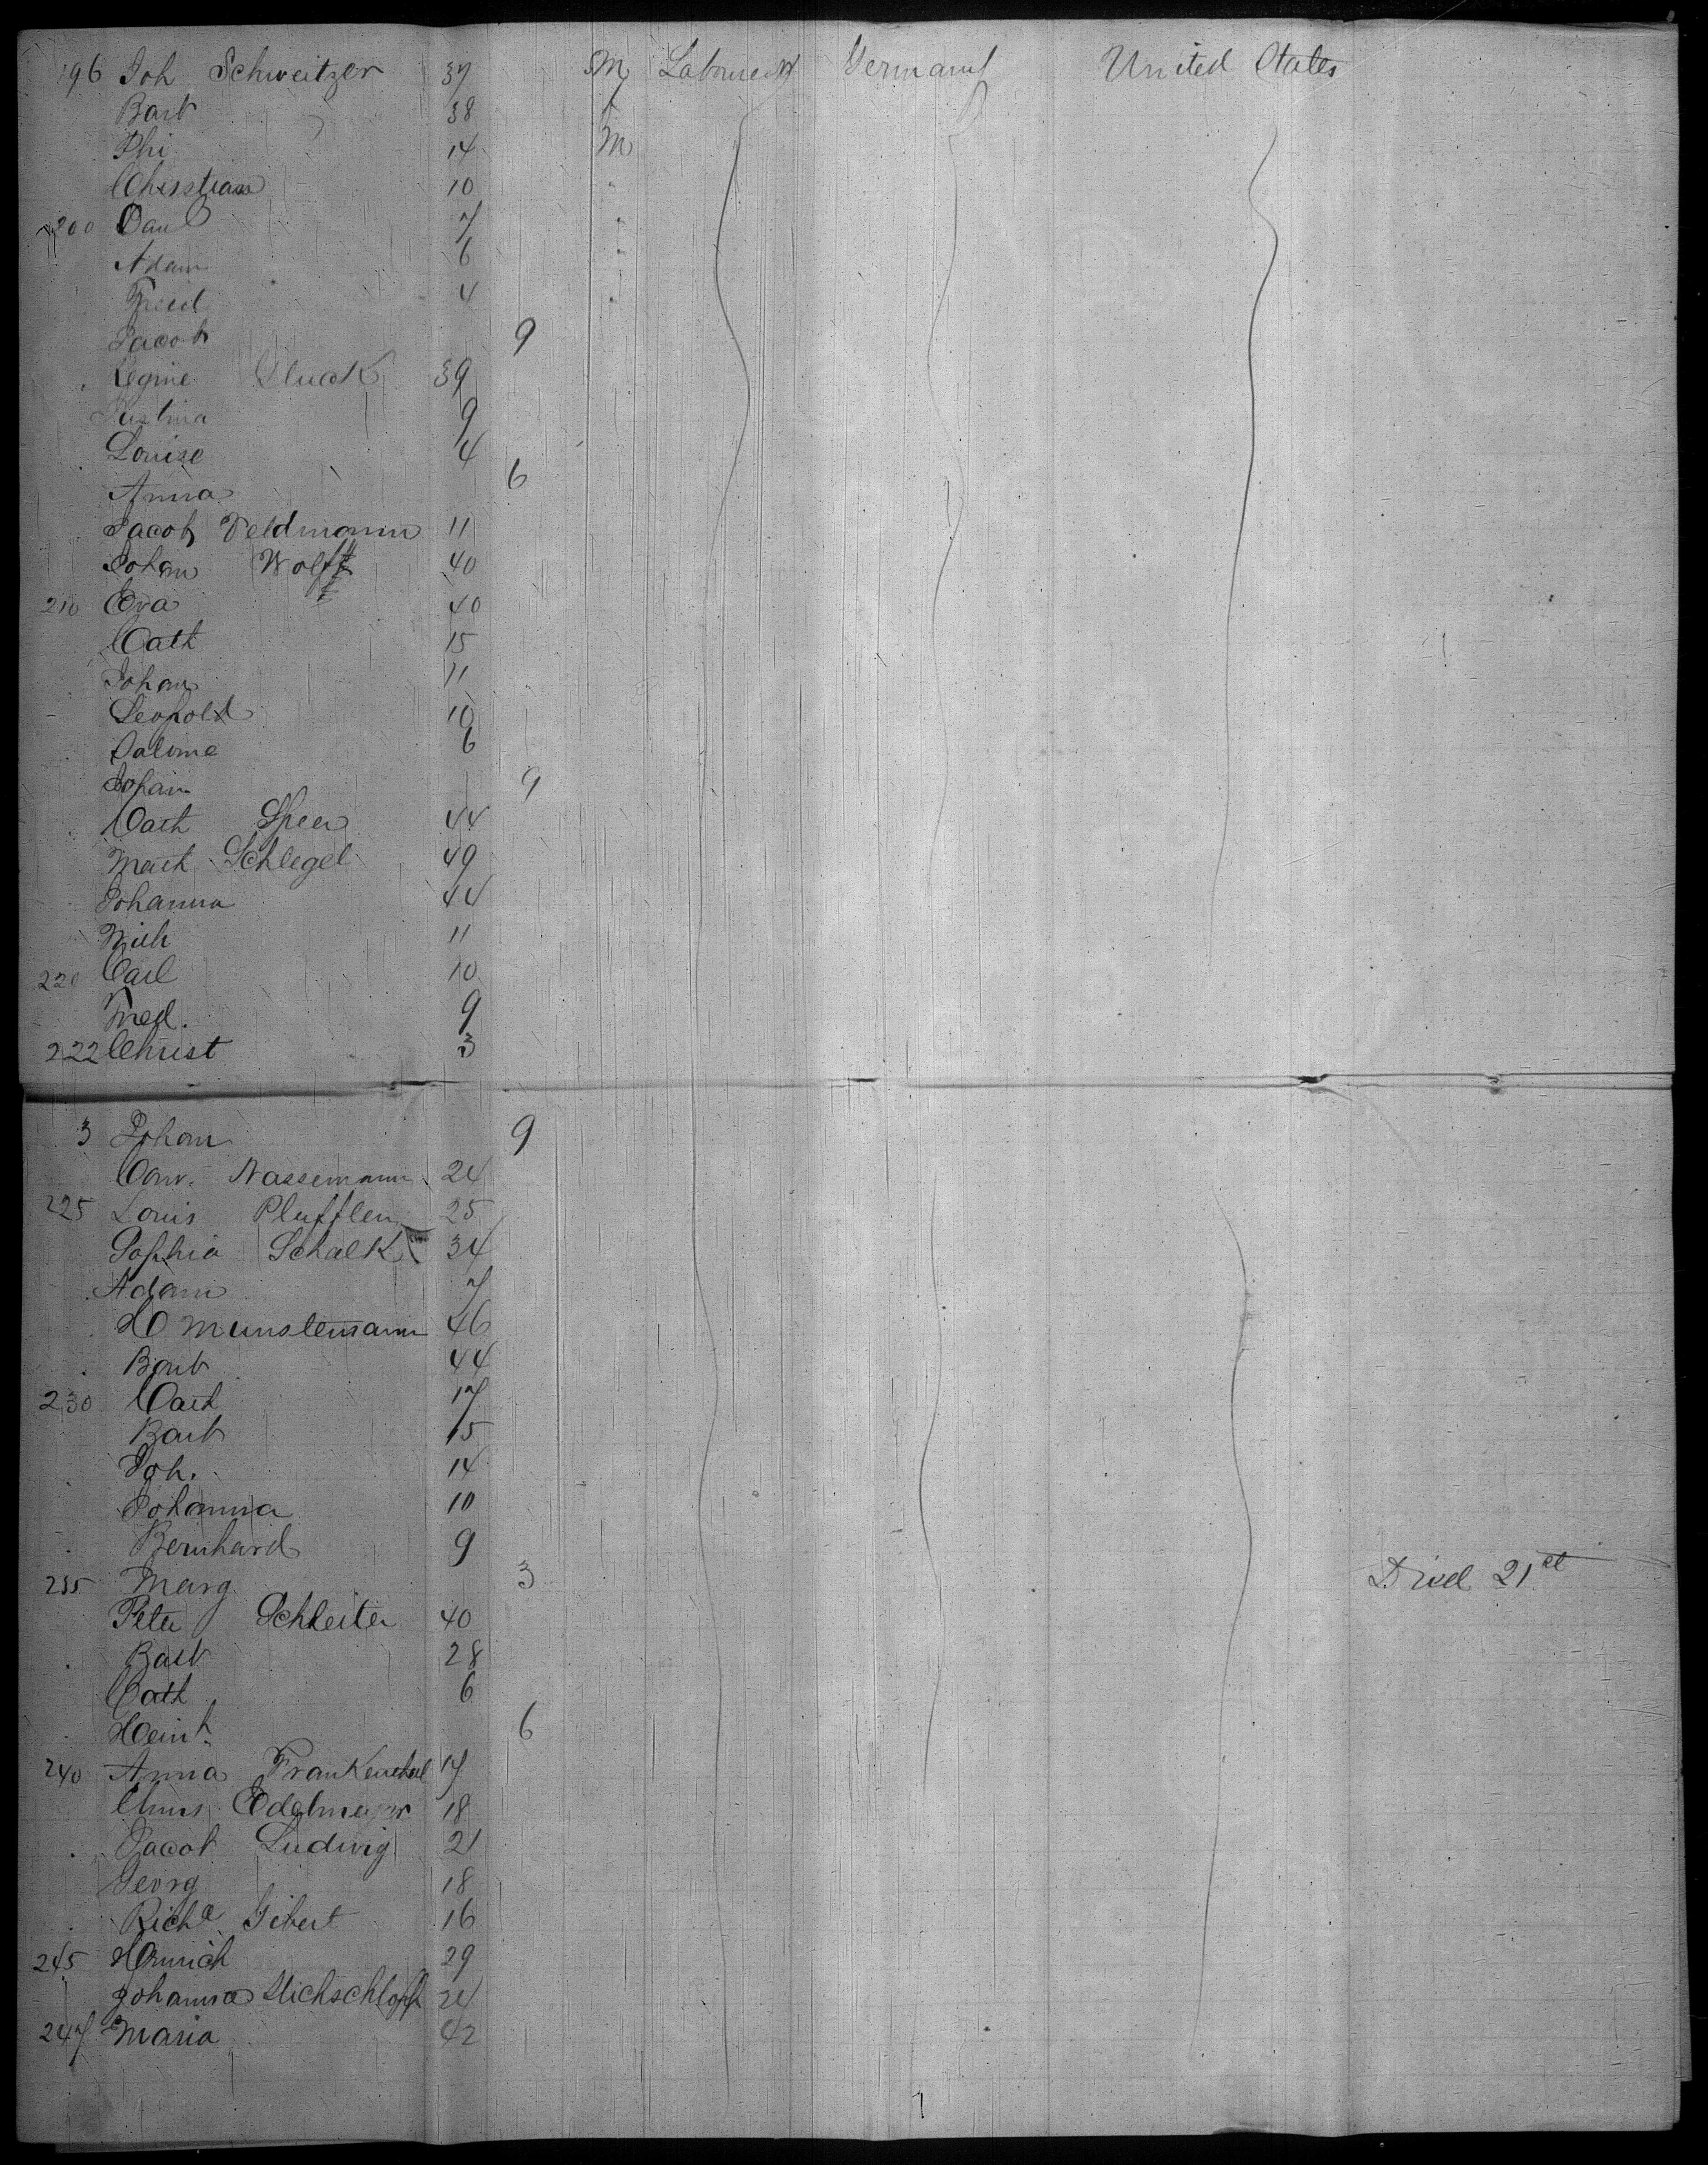 196 Joh Schweitzer 37 M Labourer Germany United States
Barb 38
Phi 14 M
Christian 10 "
200 Dan 7 "
Adam 6 "
Fried 4 "
Jacob 9
Regine Gluck 39
Justina 9
Louise 4
Anna 6
Jacob Veldmann 11
Johan Wolff 40
210 Eva 40
Cath 15
Johan 11
Leopold 10
Salome 6
Johan 9
Cath Speer 44
Math Schlegel 49
Johanna 44
Mich 11
220 Carl 10
Fried. 9
222 Christ 3
3 Johan 9
Conr. Nassemann 24
225 Louis Pluffler 25
Sophia Schalk 34
Adam 7
H Munstermann 46
Barb 44
230 Cath 17
Barb 15
Joh. 14
Johanna 10
Bernhard 9
235 Marg 3 Died 21st
Peter Schleiter 40
Barb 28
Cath 6
Heinh 6
240 Anna Frankenthal 17
Chris Edelmeyer 18
Jacob Ludwig 21
Georg 18
Richd Sibert 16
245 Heinrich 29
Johanna 24
247 Maria 42